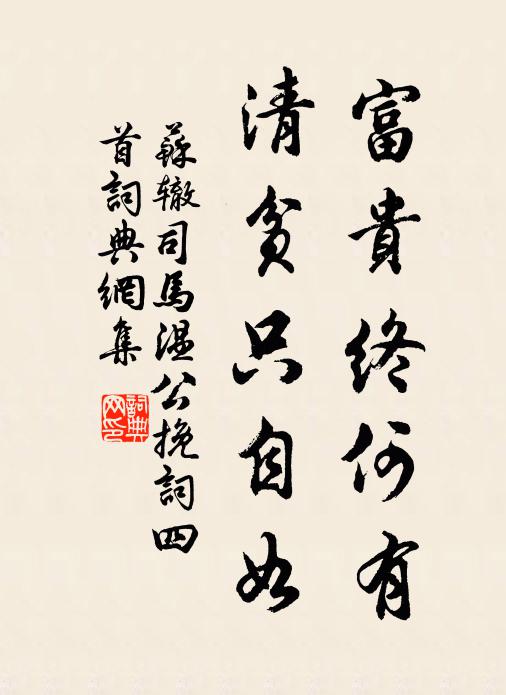 富貴終何有
清貧只自如
蘇辙司馬温公挽詞四
首詞典網集
詞典网印